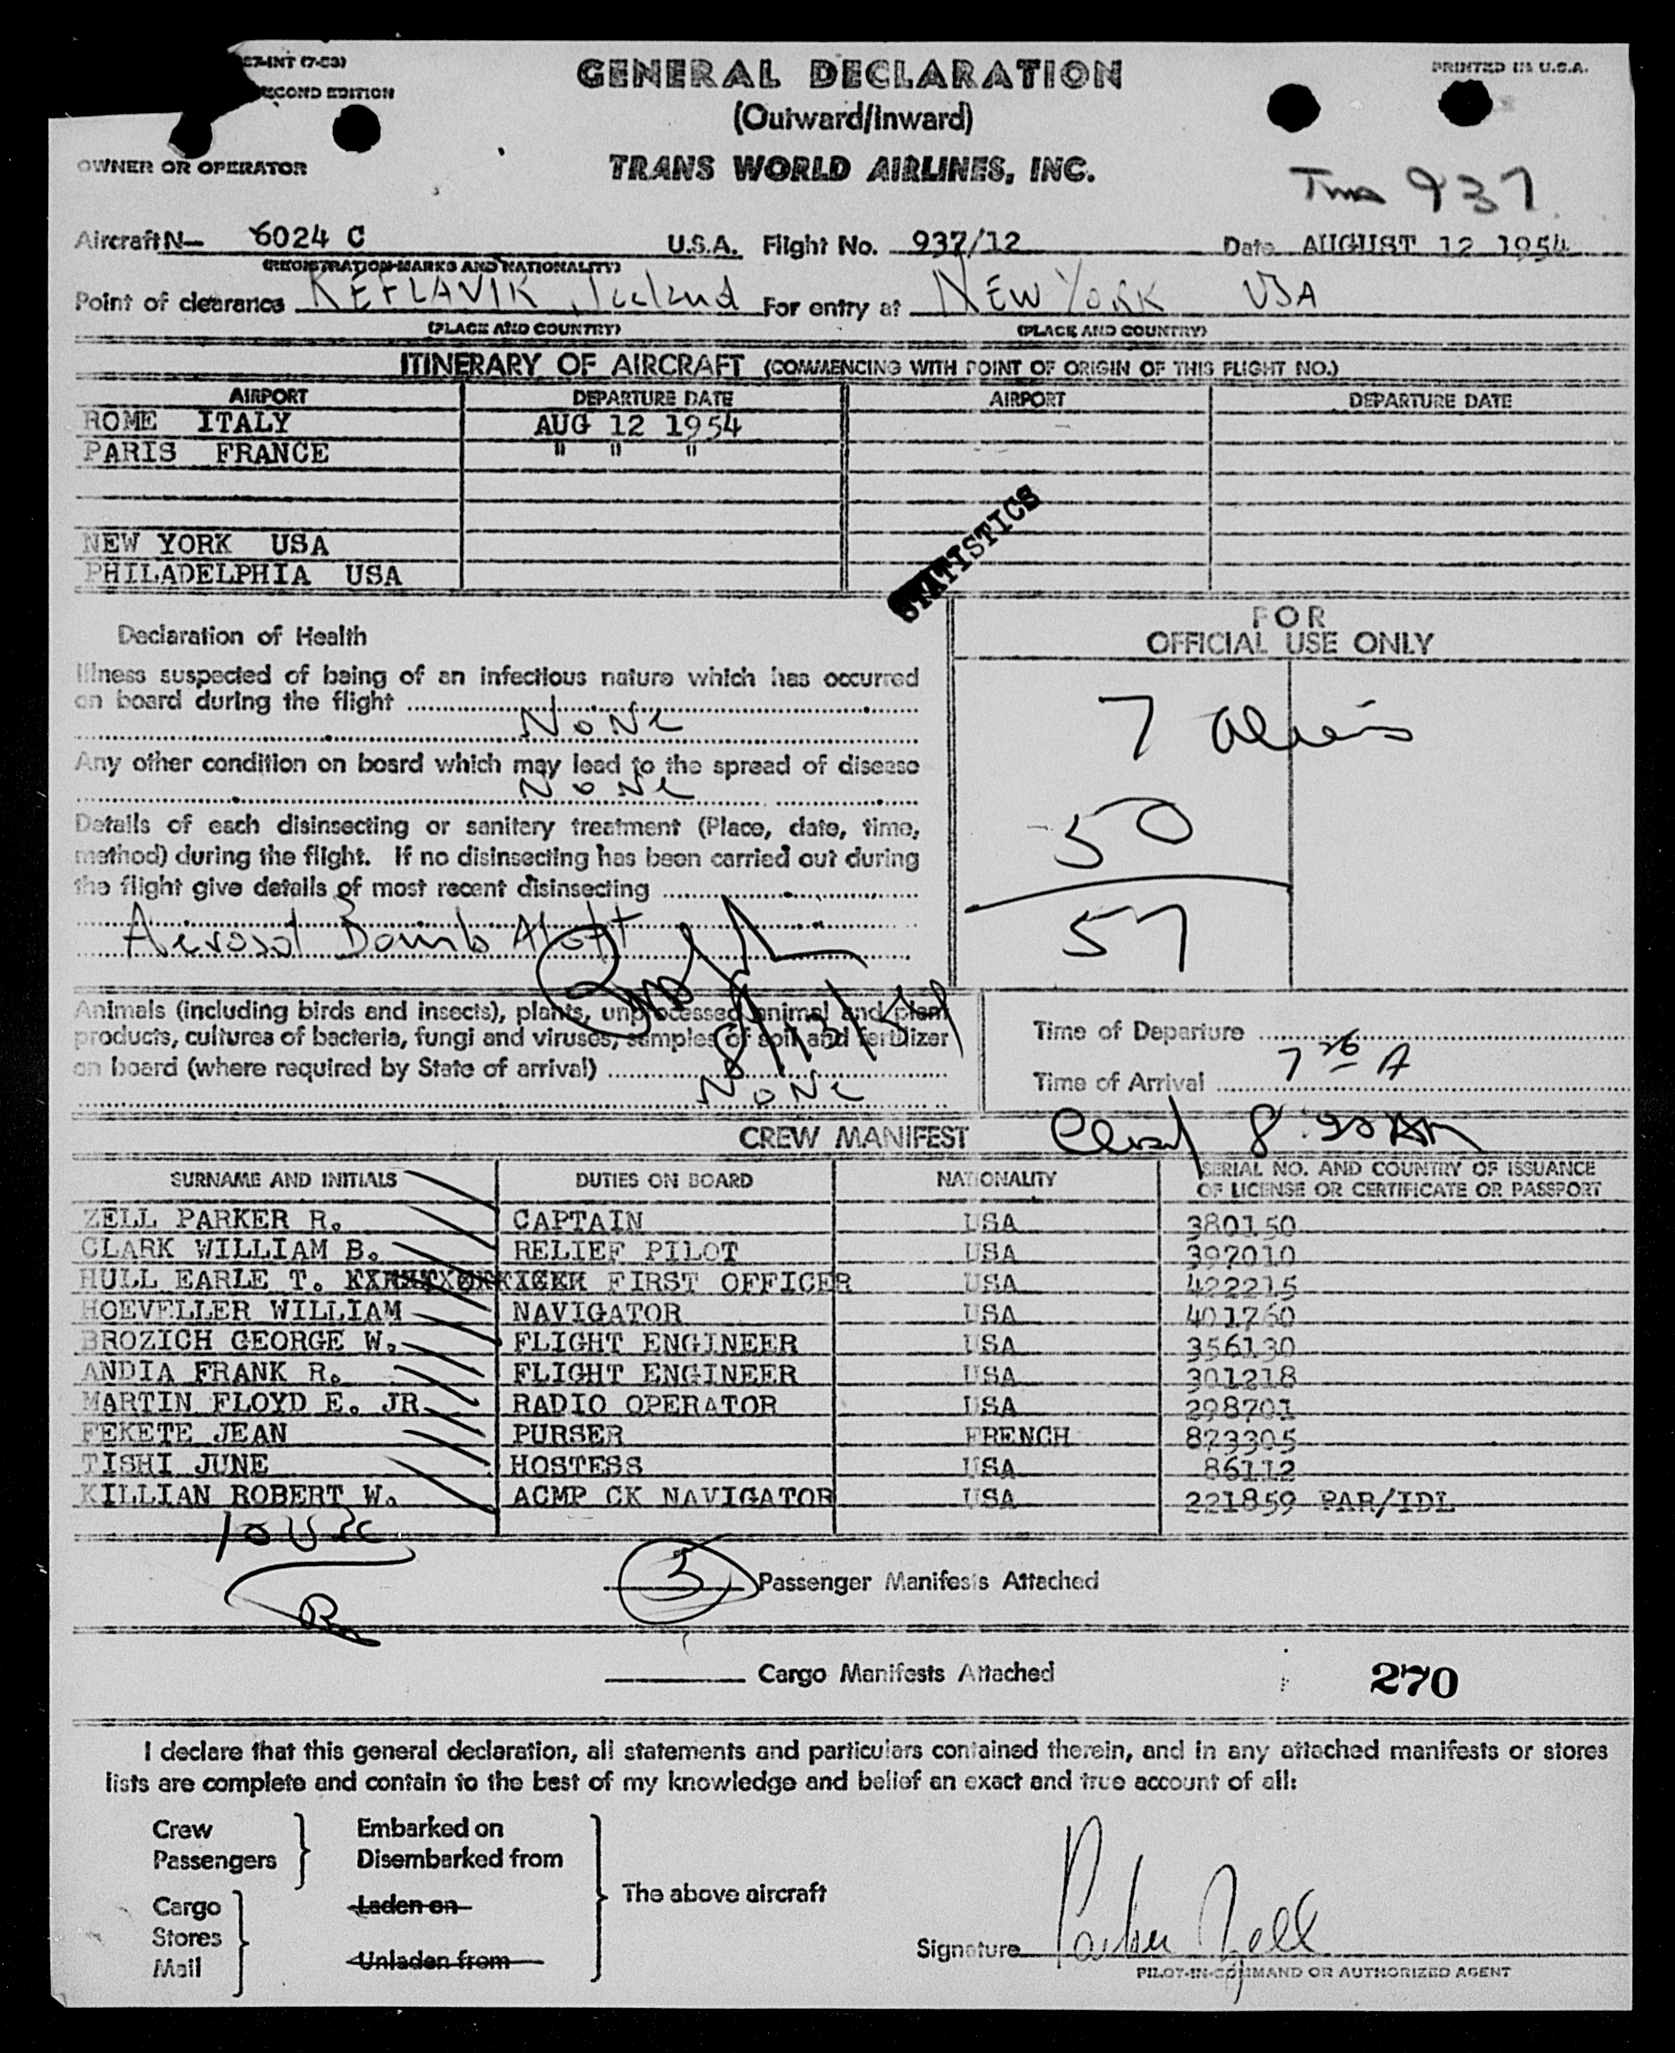 57-INT (7-53)
SECOND EDITION
GENERAL DECLARATION
PRINTED IN U.S.A.
(Outward/Inward)
OWNER OR OPERATOR
TRANS WORLD AIRLINES, INC.
Twa 937
Aircraft N- 6024 C U.S.A. Flight No. 937/12 Date AUGUST 12 1954
(REGISTRATION MARKS AND NATIONALITY)
Point of clearance KEFLAVIK, Iceland For entry at NEW YORK USA
(PLACE AND COUNTRY) (PLACE AND COUNTRY)
ITINERARY OF AIRCRAFT (COMMENCING WITH POINT OF ORIGIN OF THIS FLIGHT NO.)
AIRPORT DEPARTURE DATE AIRPORT DEPARTURE DATE
ROME ITALY AUG 12 1954
PARIS FRANCE " " "
NEW YORK USA
PHILADELPHIA USA
STATISTICS
FOR
OFFICIAL USE ONLY
7 aliens
50
57
Declaration of Health
Illness suspected of being of an infectious nature which has occurred
on board during the flight
NoNe
Any other condition on board which may lead to the spread of disease
NoNe
Details of each disinsecting or sanitary treatment (Place, date, time,
method) during the flight. If no disinsecting has been carried out during
the flight give details of most recent disinsecting
Aerosol Bomb Aloft
8/13/54
Animals (including birds and insects), plants, unprocessed animal and plant
products, cultures of bacteria, fungi and viruses, samples of soil and fertilizer
on board (where required by State of arrival)
NoNe
Time of Departure
Time of Arrival 7 26 A
CREW MANIFEST
SURNAME AND INITIALS DUTIES ON BOARD NATIONALITY SERIAL NO. AND COUNTRY OF ISSUANCE
OF LICENSE OR CERTIFICATE OR PASSPORT
ZELL PARKER R. CAPTAIN USA 380150
CLARK WILLIAM B. RELIEF PILOT USA 397010
HULL EARLE T. FIRST OFFICER USA 422215
HOEVELLER WILLIAM NAVIGATOR USA 401760
BROZICH GEORGE W. FLIGHT ENGINEER USA 356130
ANDIA FRANK R. FLIGHT ENGINEER USA 301218
MARTIN FLOYD E. JR RADIO OPERATOR USA 298701
FEKETE JEAN PURSER FRENCH 873305
TISHI JUNE HOSTESS USA 86112
KILLIAN ROBERT W. ACMP CK NAVIGATOR USA 221859 PAR/IDL
Passenger Manifests Attached
Cargo Manifests Attached
270
I declare that this general declaration, all statements and particulars contained therein, and in any attached manifests or stores
lists are complete and contain to the best of my knowledge and belief an exact and true account of all:
Crew Embarked on
Passengers Disembarked from
The above aircraft
Cargo Laden on
Stores
Mail Unladen from
Signature Parker Zell
PILOT-IN-COMMAND OR AUTHORIZED AGENT